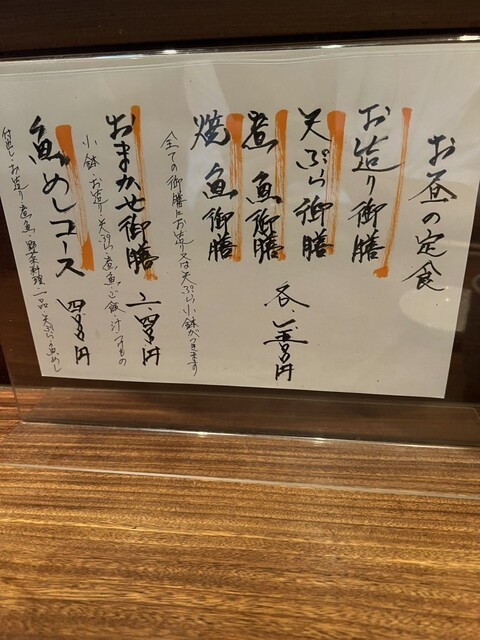 お昼の定食
お造り御膳
天ぷら御膳
煮魚御膳
焼魚御膳
各、円
全ての御膳にお造り又は天ぷら小鉢がつきます
おまかせ御膳 二、四円
小鉢・お造り・天ぷら・煮魚・ご飯・汁・つけもの
魚めしコース 四円
付出し・お造り・煮魚・野菜料理・一品・天ぷら・魚めし